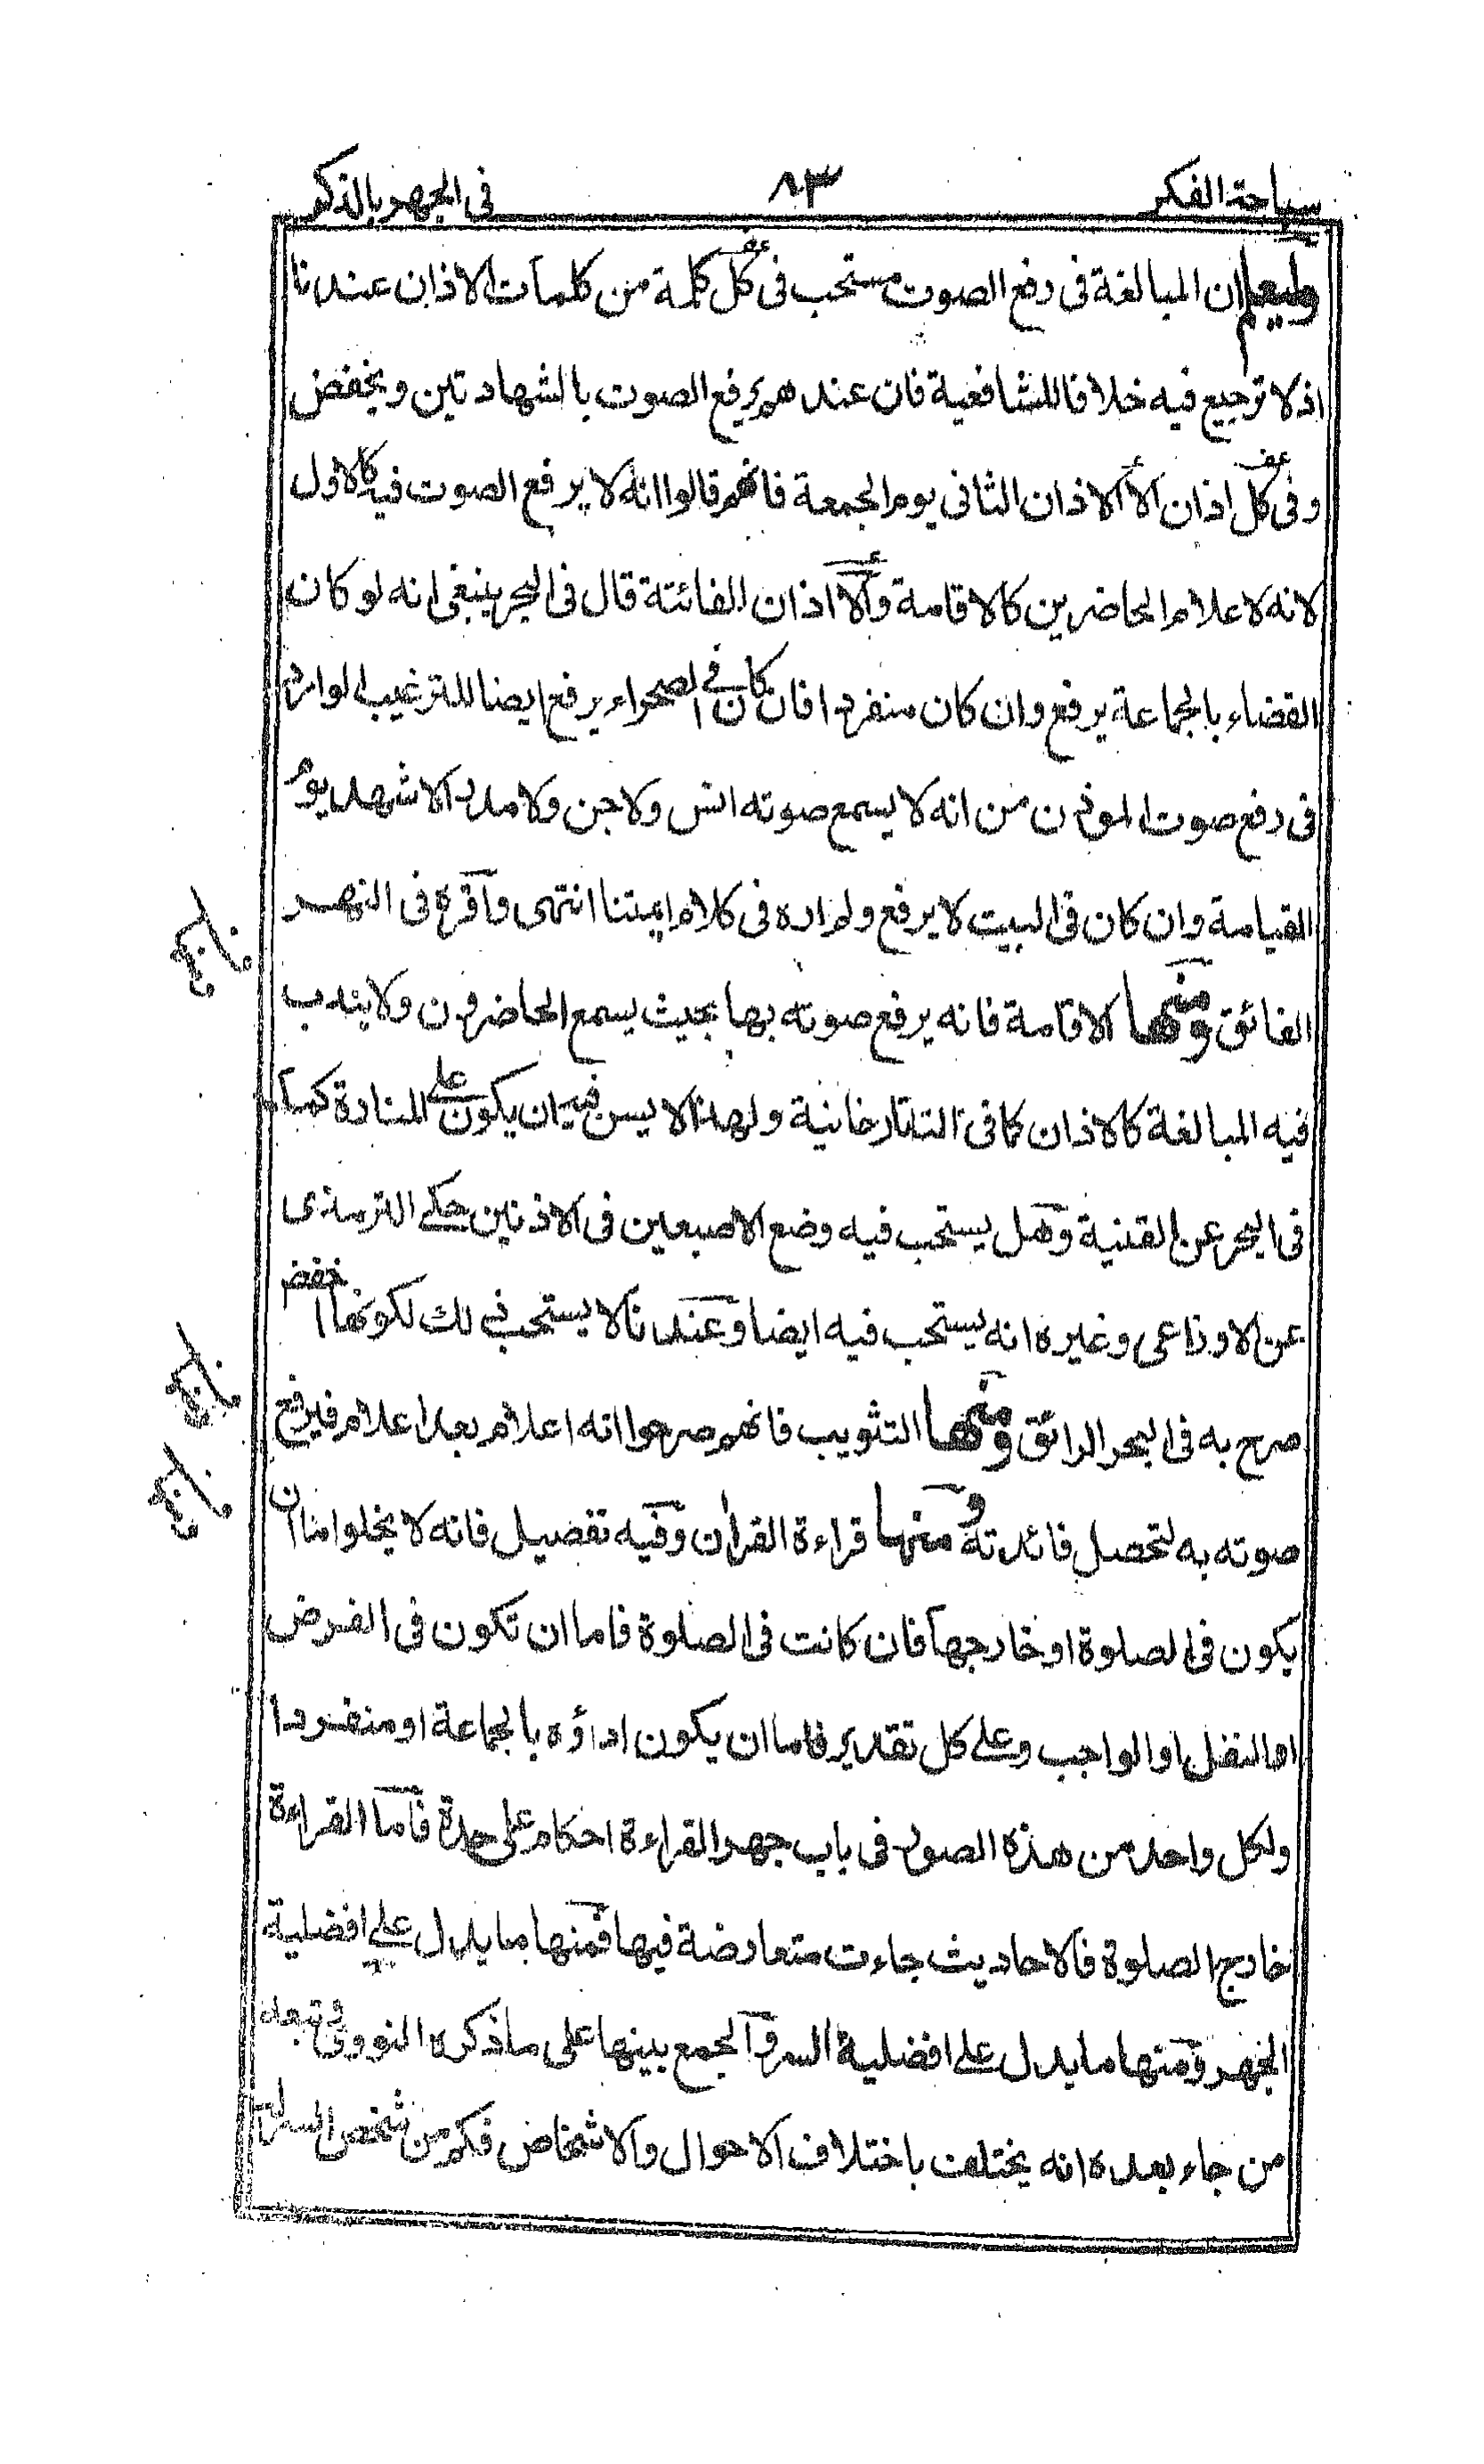 سباحة الفكر ٨٣ فى الجهر بالذكر
وليعلم ان المبالغة فى رفع الصوت مستحب فى كل كلمة من كلمات الاذان عندنا
اذ لا ترجيع فيه خلافا للشافعية فان عندهم يرفع الصوت بالشهادتين ويخفض
وفى كل اذان الا الاذان الثانى يوم الجمعة فانهم قالوا انه لا يرفع الصوت فيه كالاول
لانه لاعلام الحاضرين كالاقامة والا اذان الفائتة قال فى البحر ينبغى انه لو كان
القضاء بالجماعة يرفع وان كان منفردا فان كان فى الصحراء يرفع ايضا للترغيب الوارد
فى رفع صوت الموذن من انه لا يسمع صوته انس ولا جن ولا مدر الا شهد له يوم
القيامة وان كان فى البيت لا يرفع ولم اره فى كلام ايمتنا انتهى واقره فى النهر
الفائق ومنها الاقامة فانه يرفع صوته بها بحيث يسمع الحاضرون ولا يندب
فيه المبالغة كالاذان كما فى التتارخانية ولهذا لا يسن فيه ان يكون على المنارة كما
فى البحر عن القنية وهل يستحب فيه وضع الاصبعين فى الاذنين حكى الترمذى
عن الاوزاعى وغيره انه يستحب فيه ايضا وعندنا لا يستحب ذلك لكونها اخفض
صرح به فى البحر الرائق ومنها التثويب فانهم صرحوا انه اعلام بعد اعلام فيرفع
صوته به لتحصل فائدته ومنها قراءة القران وفيه تفصيل فانه لا يخلوا منا ان
يكون فى الصلوة او خارجها فان كانت فى الصلوة فاما ان تكون فى الفرض
او النفل او الواجب وعلى كل تقدير فاما ان يكون اداؤه بالجماعة او منفردا
ولكل واحد من هذه الصور فى باب جهر القراءة احكام على حدة فاما القراءة
خارج الصلوة فالاحاديث جاءت متعارضة فيها فمنها ما يدل على افضلية
الجهر ومنها ما يدل على افضلية السر والجمع بينها على ما ذكره النووى وتبعه
من جاء بعده انه يختلف باختلاف الاحوال والاشخاص فكم من شخص السر له